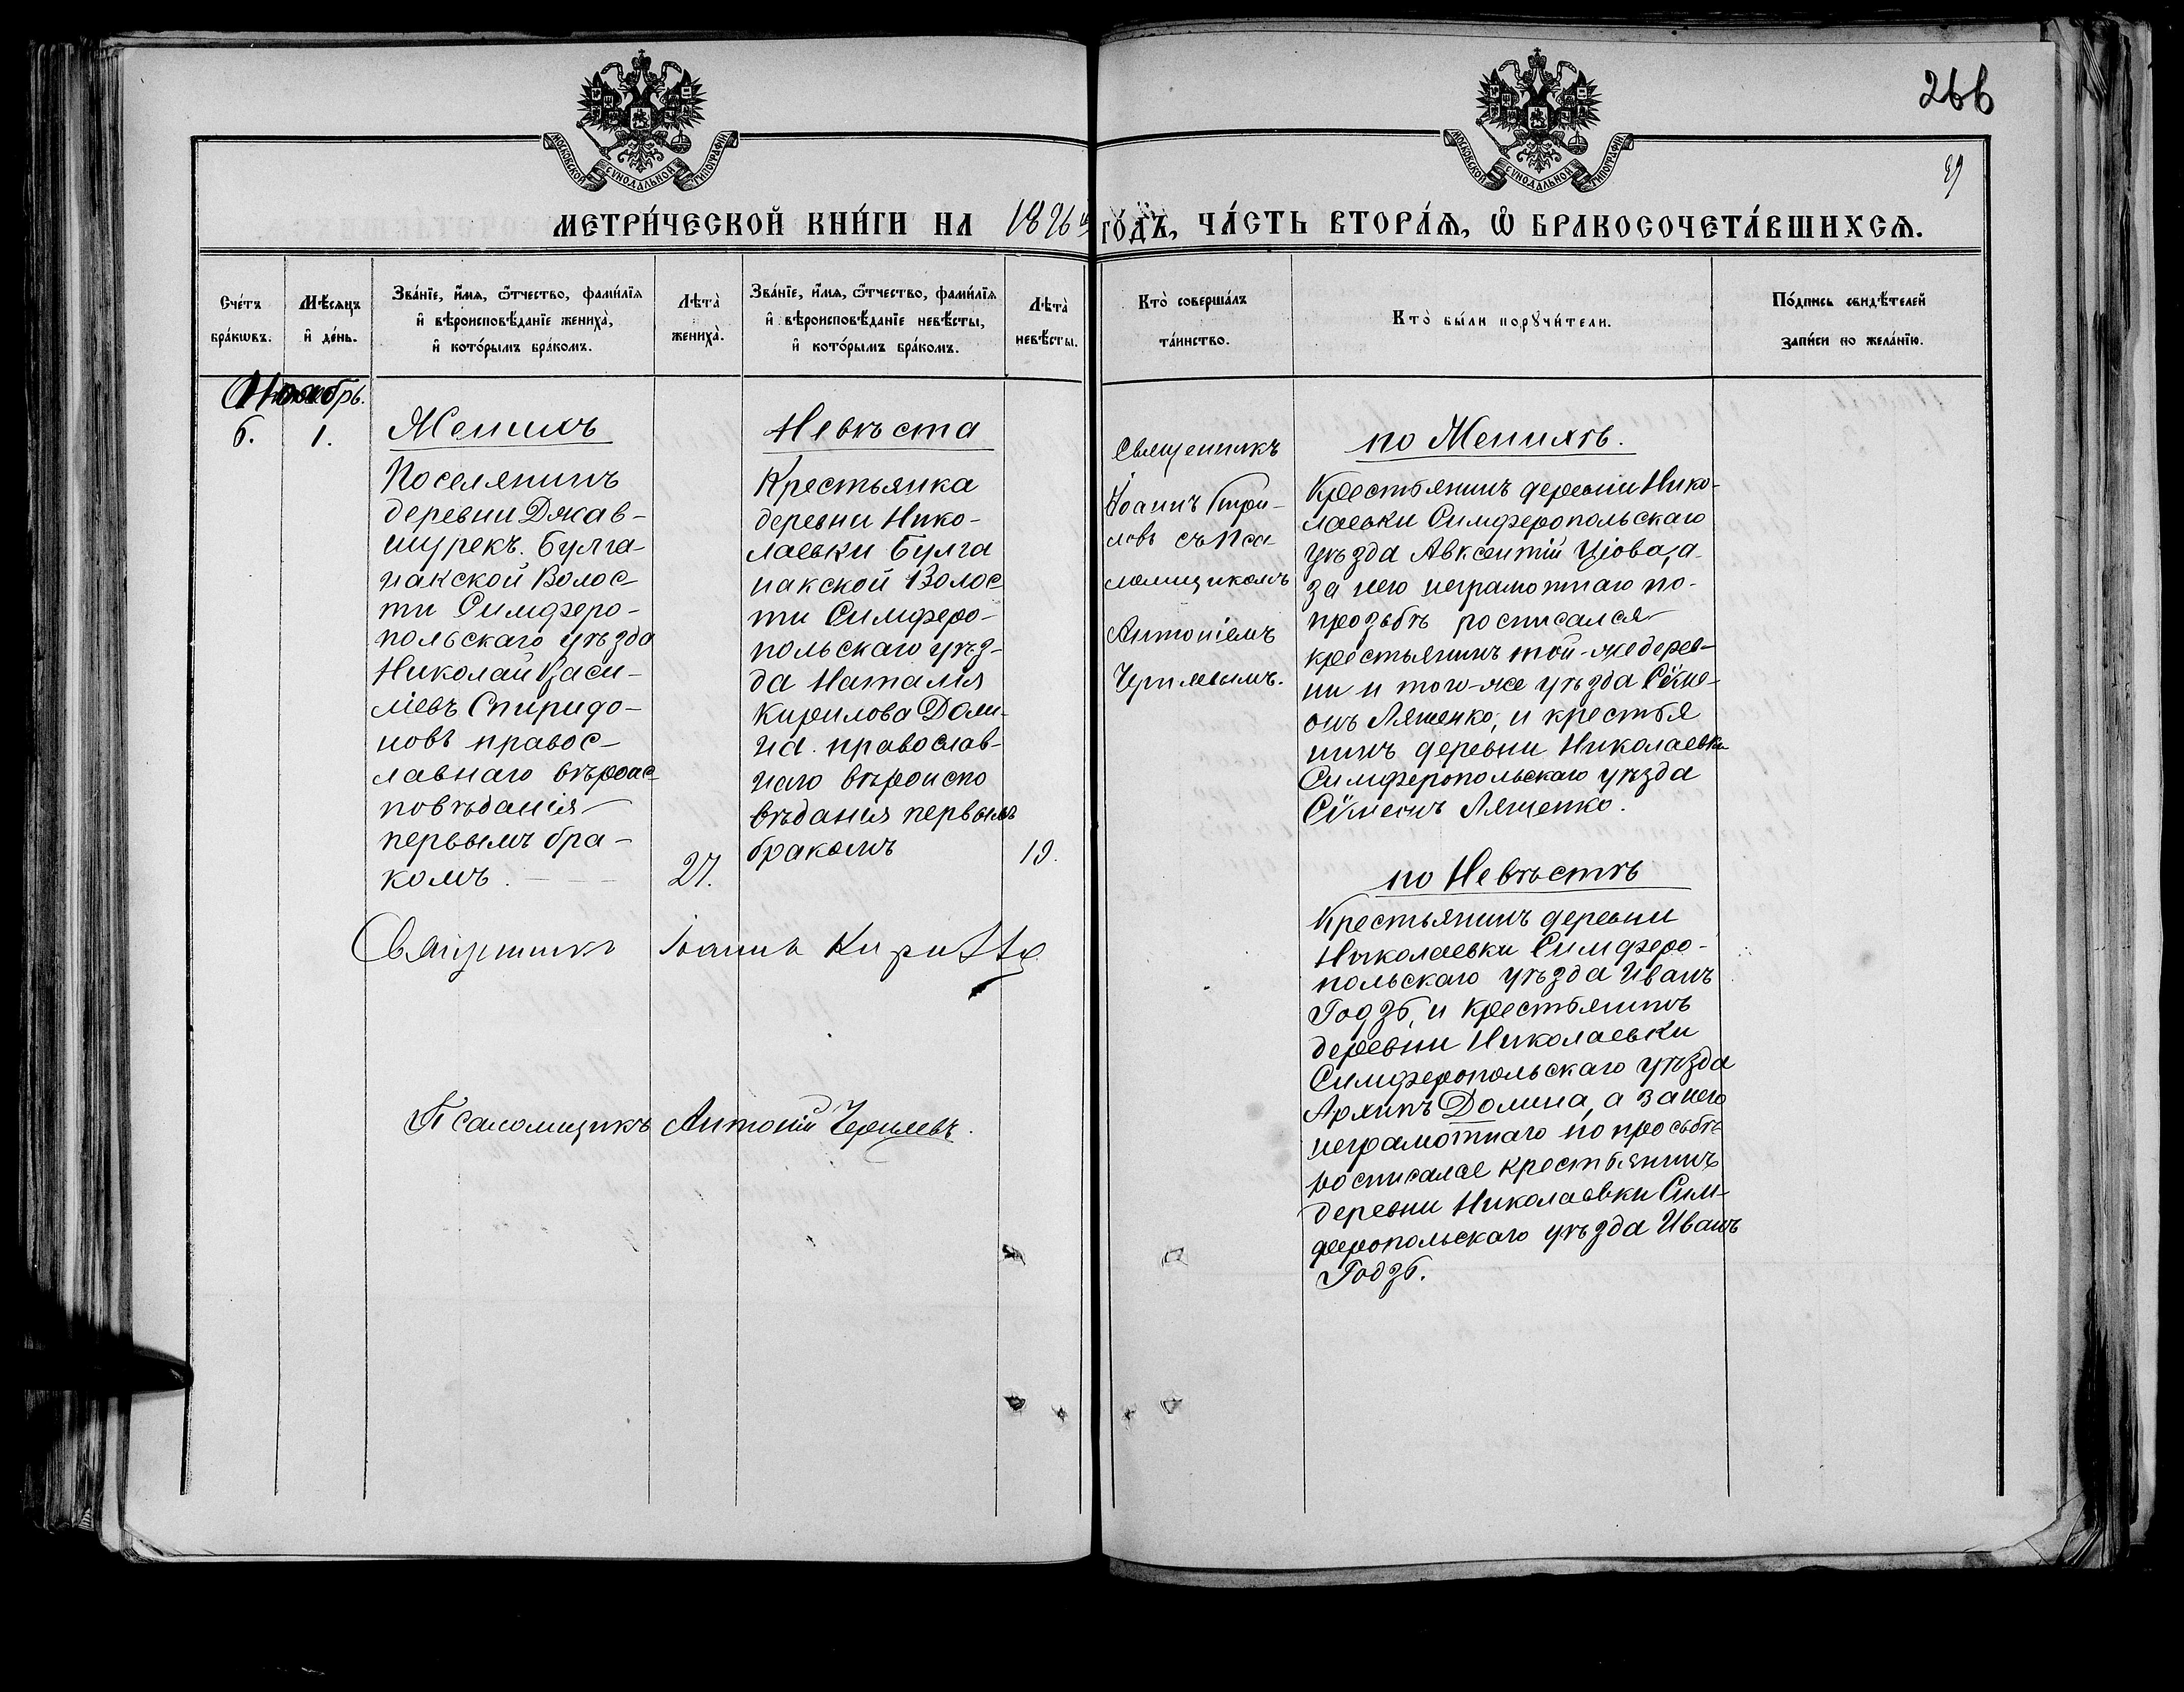 266
89
МОСКОВСКОЙ СѴНОДАЛЬНОЙ ТИПОГРАФІИ
МОСКОВСКОЙ СѴНОДАЛЬНОЙ ТИПОГРАФІИ
МЕТРИ́ЧЕСКОЙ КНИ́ГИ НА 1896й ГО́ДЪ, ЧА́СТЬ ВТОРА́Ѧ, Ѽ БРАКОСОЧЕТА́ВШИХСѦ.
Сче́тъ
бра́кωвъ.
Мѣ́сѧцъ
и҆ де́нь.
Зва́нїе, и҆́мѧ, ѻ҆́тчество, фами́лїѧ
и҆ вѣроисповѣ́данїе жениха̀,
и҆ кото́рымъ бра́комъ.
Лѣта̀
жениха̀.
Зва́нїе, и҆́мѧ, ѻ҆́тчество, фами́лїѧ
и҆ вѣроисповѣ́данїе невѣ́сты,
и҆ кото́рымъ бра́комъ.
Лѣта̀
невѣ́сты.
Кто̀ соверша́лъ
та́инство.
Кто̀ бы́ли порꙋчи́тели.
По́дпись свидѣ́телей
за́писи по жела́нїю.
Ноябрь.
6.
1.
Женихъ
Поселянинъ
деревни Джав-
шурекъ. Булга-
накской Волос-
ти Симферо-
польскаго уѣзда
Николай Васи-
ліевъ Спиридо-
новъ правос-
лавнаго вѣроис-
повѣданія
первымъ бра-
комъ.
27.
Невѣста
Крестьянка
деревни Нико-
лаевки Булга
накской Волос
ти Симферо-
польскаго уѣз-
да Наталія
Кирилова Доли-
на. православ-
наго вѣроиспо
вѣданія первымъ
бракомъ
19.
Священникъ
Іоаннъ Кири-
ловъ съ Пса
ломщикомъ
Антоніемъ
по Женихѣ.
Крестьянинъ деревни Нико-
лаевки Симферопольскаго
уѣзда Авксентій а
за него неграмотнаго по-
прозьбѣ росписался
крестьянинъ той-же дерев-
ни и того-же уѣзда Сѵме-
онъ Ляшенко, и крестья
нинъ деревни Николаевки
Симферопольскаго уѣзда
Сѵмеонъ Ляшенко.
по Невѣстѣ
Крестьянинъ деревни
Николаевки Симферо-
польскаго уѣзда Иванъ
Годзь, и крестьянинъ
деревни Николаевки
Симферопольскаго уѣзда
Архипъ Долина, а за него
неграмотнаго по просьбѣ
росписался крестьянинъ
деревни Николаевки Сим-
феропольскаго уѣзда Иванъ
Годзь.
Священникъ Іоаннъ
Псаломщикъ Антоній